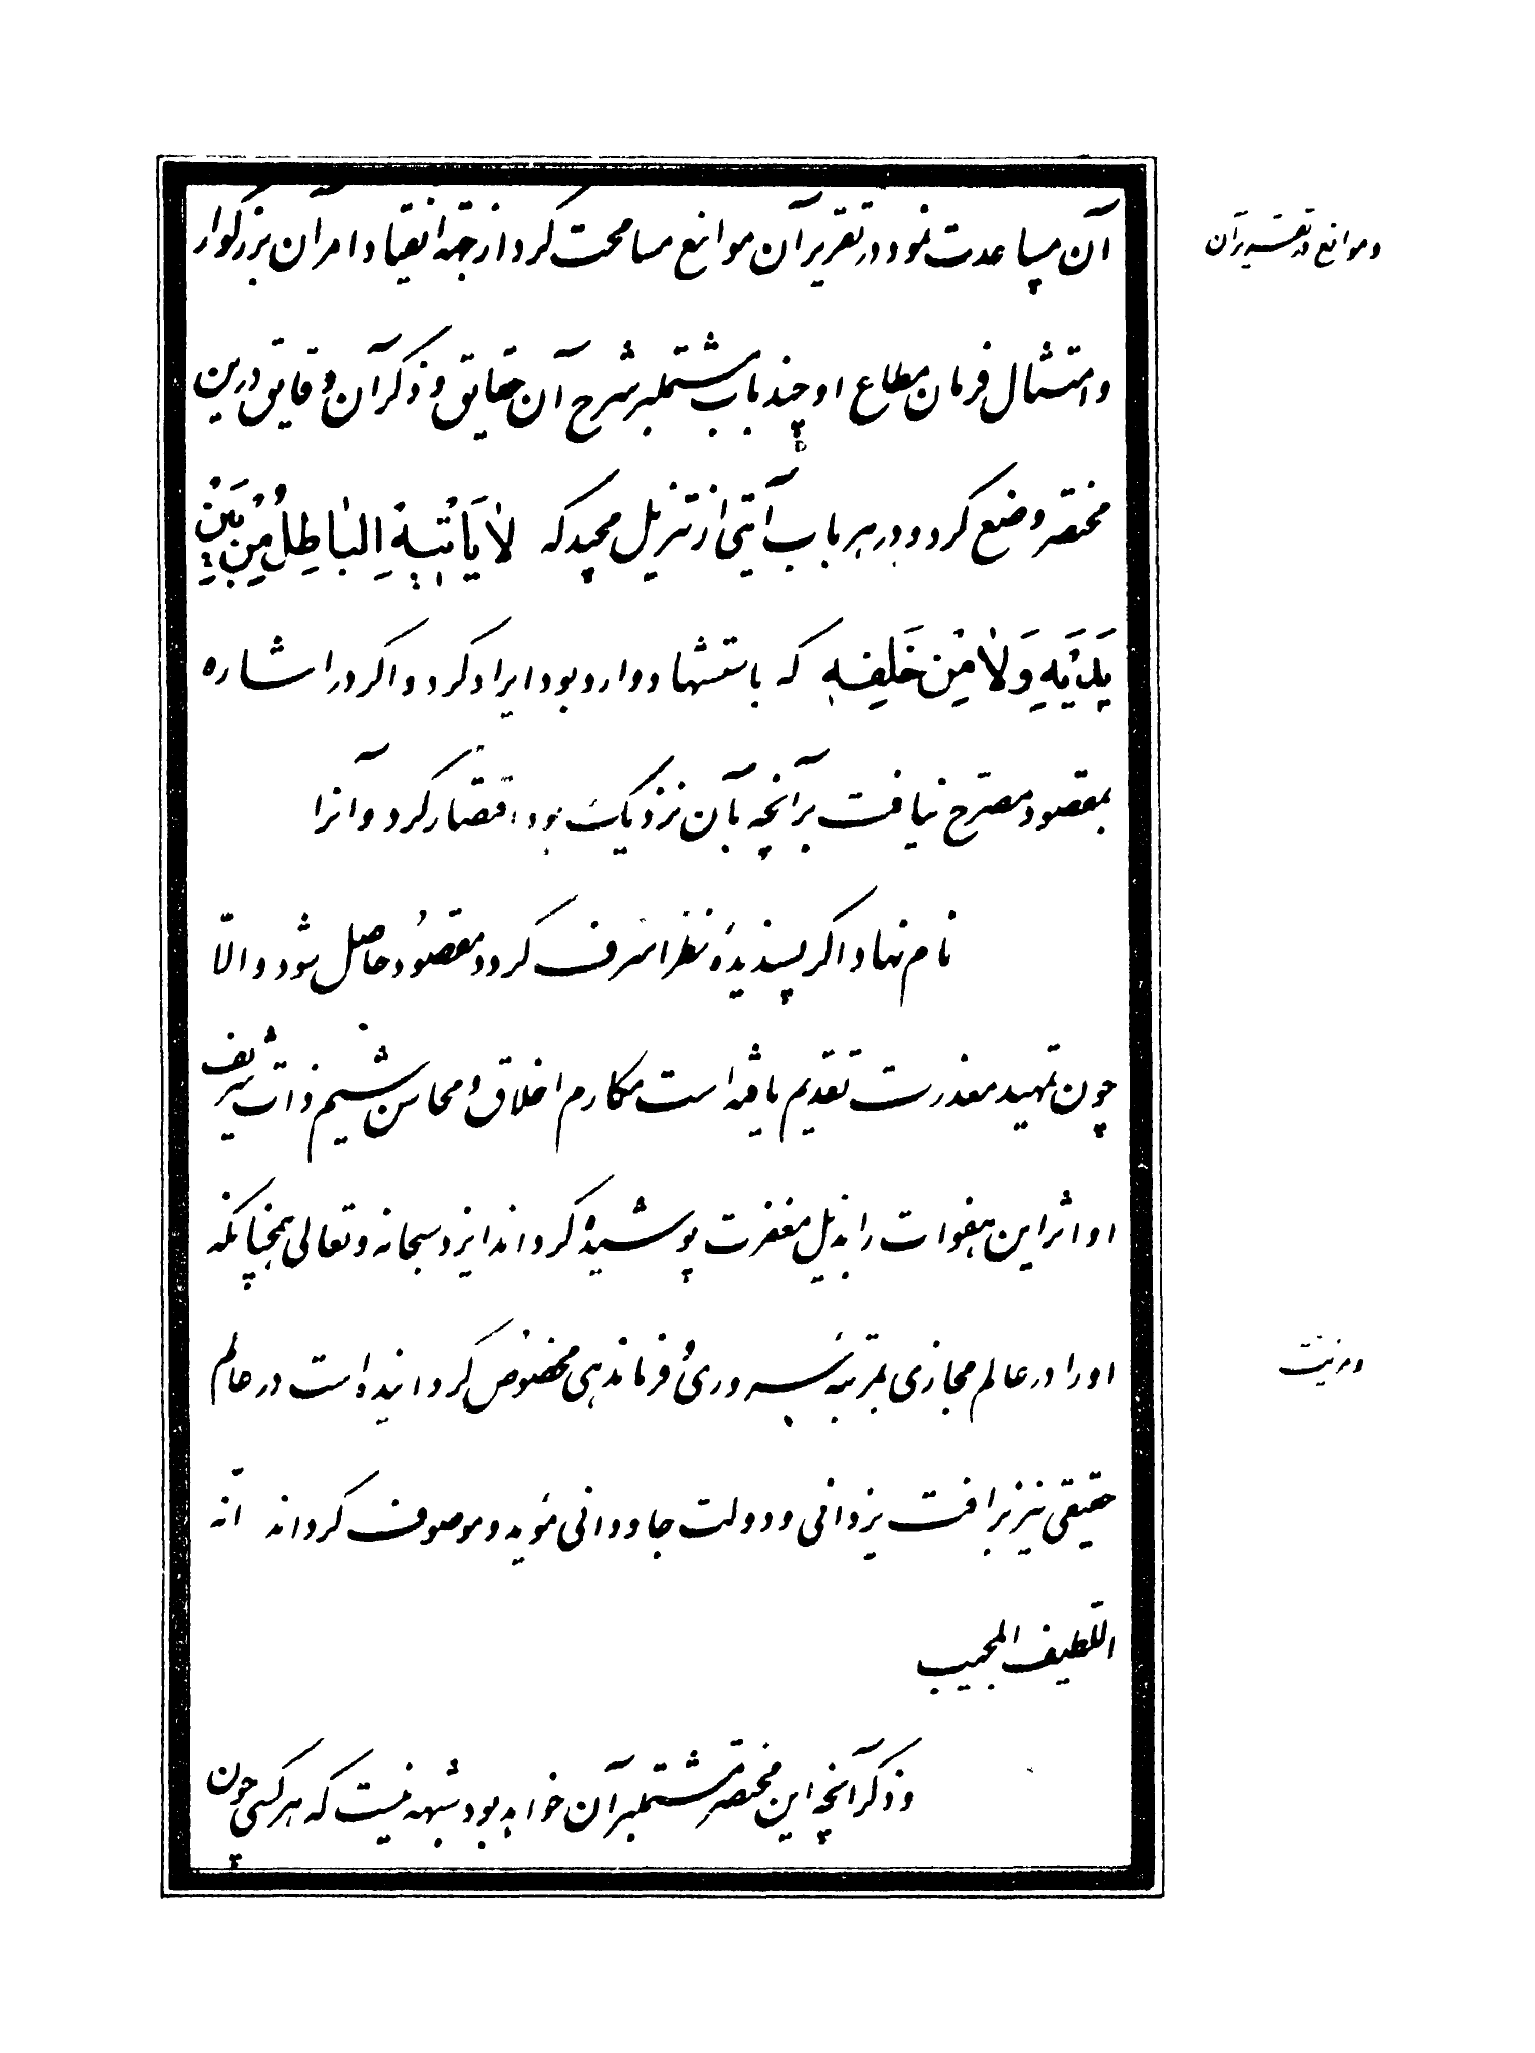 آن مساعدت نمود در تقریر آن موانع مسامحت کرد از جهة انقیاد امر آن بزرگوار
و موانع در تقریر آن
و امتثال فرمان مطاع او چند باب مشتملبر شرح آن حقایق و ذکر آن دقایق درین
مختصر وضع کرد و در هر باب آیتی از تنزیل مجید که لاٰ یَأتیهِ الباٰطِلُ مِنْ بَیْنِ
یَدَیْهِ وَلاٰ مِنْ خَلِفِه که باستشهاد وارد بود ایراد کرد و اگر در اشاره
بمقصود مصرح نیافت بر آنچه بآن نزدیک بود اقتصار کرد و آنرا
نام نهاد اگر پسندیدهٔ نظر اشرف گردد مقصُود حاصل شود و الّا
چون تمهید معذرت تقدیم یافته است مکارم اخلاق و محاسن شیم ذات شریف
او اثر این هفوات را بذیل مغفرت پوشیده گرداند ایزد سبحانه و تعالی همچنانکه
او را در عالم مجازی بمرتبهٔ سروری و فرماندهی مخصُوص گردانیده است در عالم
حقیقی نیز برافت یزدانی و دولت جاودانی مؤید و موصوف گرداند انّه
اللّطیف المجیب
و ذکر آنچه این مختصر مشتملبر آن خواهد بود شبهه نیست که هر کسی چون